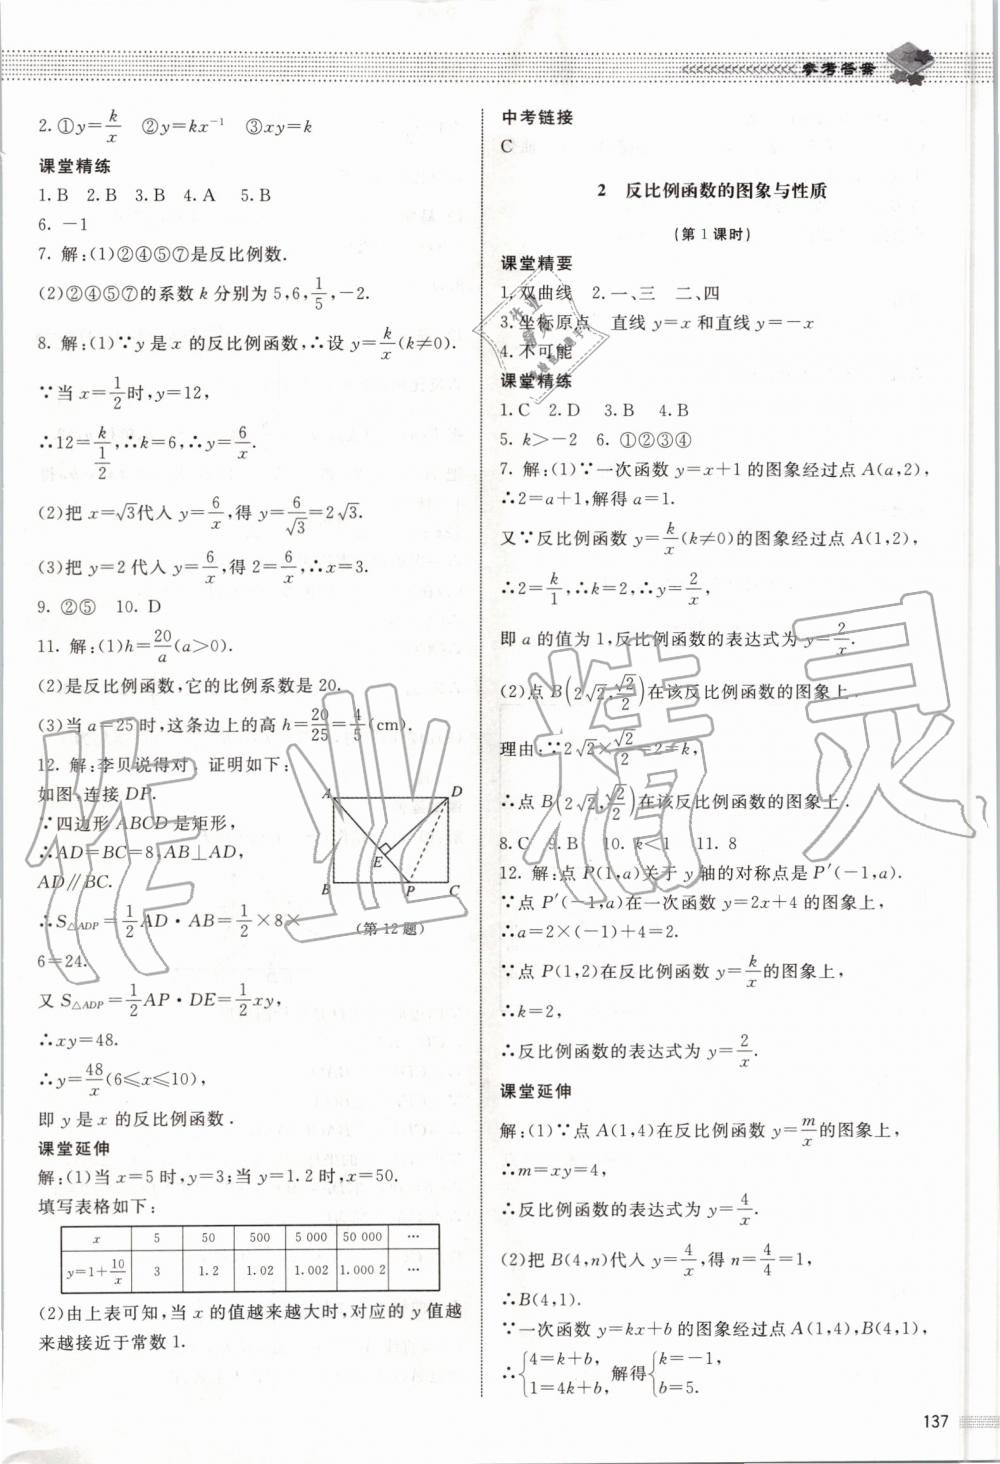 参考答案
2. ①y=k/x ②y=kx⁻¹ ③xy=k
课堂精练
1. B 2. B 3. B 4. A 5. B
6. －1
7. 解:(1)②④⑤⑦是反比例数.
(2)②④⑤⑦的系数 k 分别为 5,6,1/5,－2.
8. 解:(1)∵y 是 x 的反比例函数,∴设 y=k/x(k≠0).
∵当 x=1/2时,y=12,
∴12=k/(1/2),∴k=6,∴y=6/x.
(2)把 x=√3代入 y=6/x,得 y=6/√3=2√3.
(3)把 y=2 代入 y=6/x,得 2=6/x,∴x=3.
9. ②⑤ 10. D
11. 解:(1)h=20/a(a>0).
(2)是反比例函数,它的比例系数是 20.
(3)当 a=25 时,这条边上的高 h=20/25=4/5(cm).
12. 解:李贝说得对. 证明如下:
如图,连接 DP.
∵四边形 ABCD 是矩形,
∴AD=BC=8,AB⊥AD,
AD∥BC.
∴S△ADP=1/2AD·AB=1/2×8×
6=24.
A D E B P C
(第 12 题)
又 S△ADP=1/2AP·DE=1/2xy,
∴xy=48.
∴y=48/x(6≤x≤10),
即 y 是 x 的反比例函数.
课堂延伸
解:(1)当 x=5 时,y=3;当 y=1.2 时,x=50.
填写表格如下:
x 5 50 500 5 000 50 000 …
y=1+10/x 3 1.2 1.02 1.002 1.000 2 …
(2)由上表可知,当 x 的值越来越大时,对应的 y 值越
来越接近于常数 1.
中考链接
C
2 反比例函数的图象与性质
(第 1 课时)
课堂精要
1. 双曲线 2. 一、三 二、四
3. 坐标原点 直线 y=x 和直线 y=－x
4. 不可能
课堂精练
1. C 2. D 3. B 4. B
5. k>－2 6. ①②③④
7. 解:(1)∵一次函数 y=x+1 的图象经过点 A(a,2),
∴2=a+1,解得 a=1.
又∵反比例函数 y=k/x(k≠0)的图象经过点 A(1,2),
∴2=k/1,∴k=2,∴y=2/x,
即 a 的值为 1,反比例函数的表达式为 y=2/x.
(2)点 B(2√2,√2/2)在该反比例函数的图象上.
理由:∵2√2×√2/2=2=k,
∴点 B(2√2,√2/2)在该反比例函数的图象上.
8. C 9. B 10. k<1 11. 8
12. 解:点 P(1,a)关于 y 轴的对称点是 P′(－1,a).
∵点 P′(－1,a)在一次函数 y=2x+4 的图象上,
∴a=2×(－1)+4=2.
∵点 P(1,2)在反比例函数 y=k/x的图象上,
∴k=2,
∴反比例函数的表达式为 y=2/x.
课堂延伸
解:(1)∵点 A(1,4)在反比例函数 y=m/x的图象上,
∴m=xy=4,
∴反比例函数的表达式为 y=4/x.
(2)把 B(4,n)代入 y=4/x,得 n=4/4=1,
∴B(4,1).
∵一次函数 y=kx+b 的图象经过点 A(1,4),B(4,1),
∴{4=k+b, 1=4k+b, 解得{k=－1, b=5.
137
作业精灵